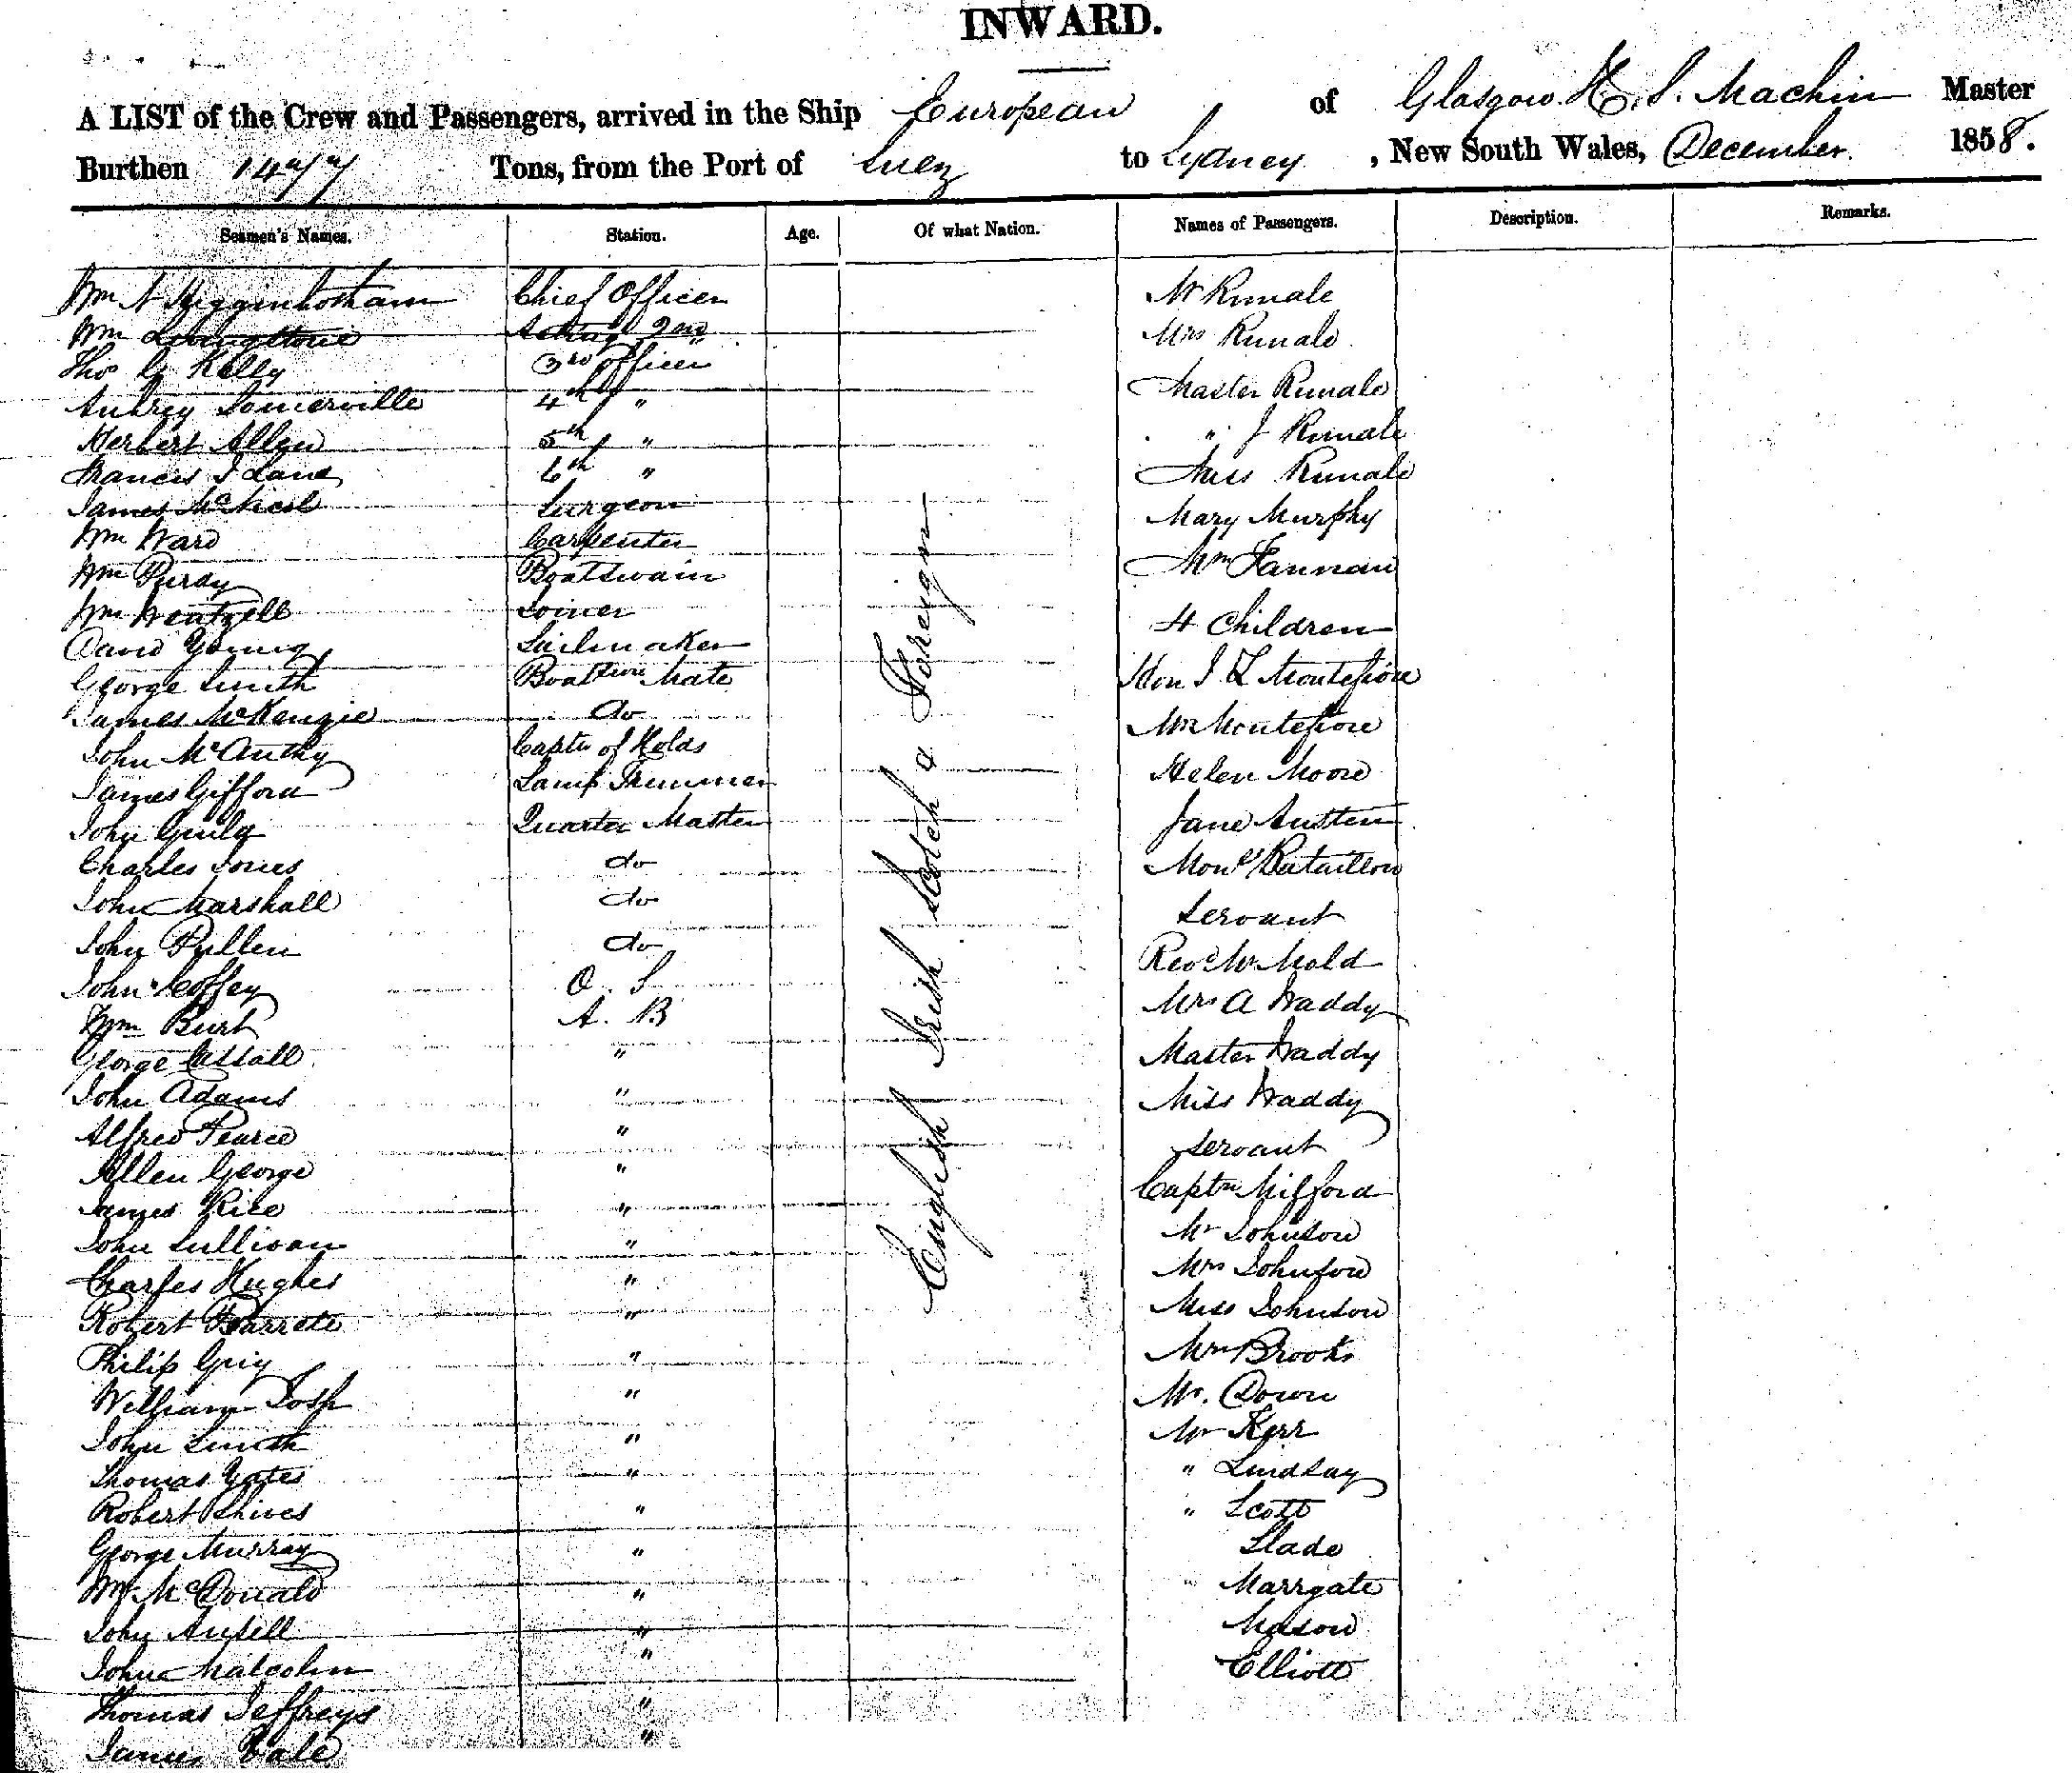 INWARD.
A LIST of the Crew and Passengers, arrived in the Ship European of Glasgow H. S. Machin Master
Burthen 1477 Tons, from the Port of Suez to Sydney, New South Wales, December 1858.
Seamen's Names. Station. Age. Of what Nation. Names of Passengers. Description. Remarks.
Wm N Higginbotham Chief Officer Mr Runale
Wm Livingstone Acting 2nd " Mrs Runale
Thos G Kelly 3rd Officer
Aubrey Somerville 4th " Master Runale
Herbert Allen 5th " " J Runale
Francis J Lane 6th " Miss Runale
James McNeil Surgeon Mary Murphy
Wm Ward Carpenter
Wm Purdy Boatswain Mrs Fannan
Wm Wentzell Joiner 4 Children
David Young Sailmaker
George Smith Boatswns Mate Hon J L Montefiore
James McKenzie do Mrs Montefiore
John McAuthy Captn of Holds Helen Moore
James Gifford Lamp Trimmer
John Quarter Master Jane Austin
Charles Jones do Monsr Bataillon
John Marshall do Servant
John Pullen do Revd Mr Mold
John Coffey O. S Mrs A Waddy
Wm Burt A. B
George " Master Waddy
John Adams " Miss Waddy
Alfred Pearce " Servant
Allen George " Captn Milford
James Rice " Mr Johnson
John Sullivan " Mrs Johnson
Charles Hughes " Miss Johnson
Robert Barrett " Mrs Brooks
Philip "
William Tosh " Mr. Down
John Smith " Mr Kerr
Thomas Yates " " Lindsay
Robert Shives " " Scott
George Murray " Slade
Wm McDonald " " Marrgate
John Ansell " Mason
John Malcolm " Elliott
Thomas Jeffreys "
James Vale "
English Irish Scotch & Foreign